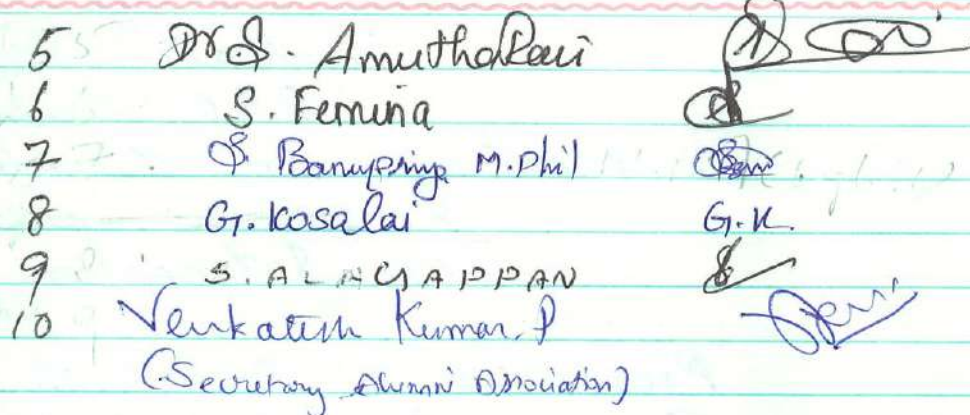 5 Dr S. AmuthaRani
6 S. Femina
7 S. Banupriya M.Phil
8 G. Kosalai G.K.
9 S. ALAGAPPAN
10 Venkatesh Kumar. P
(Secretary Alumni Association)